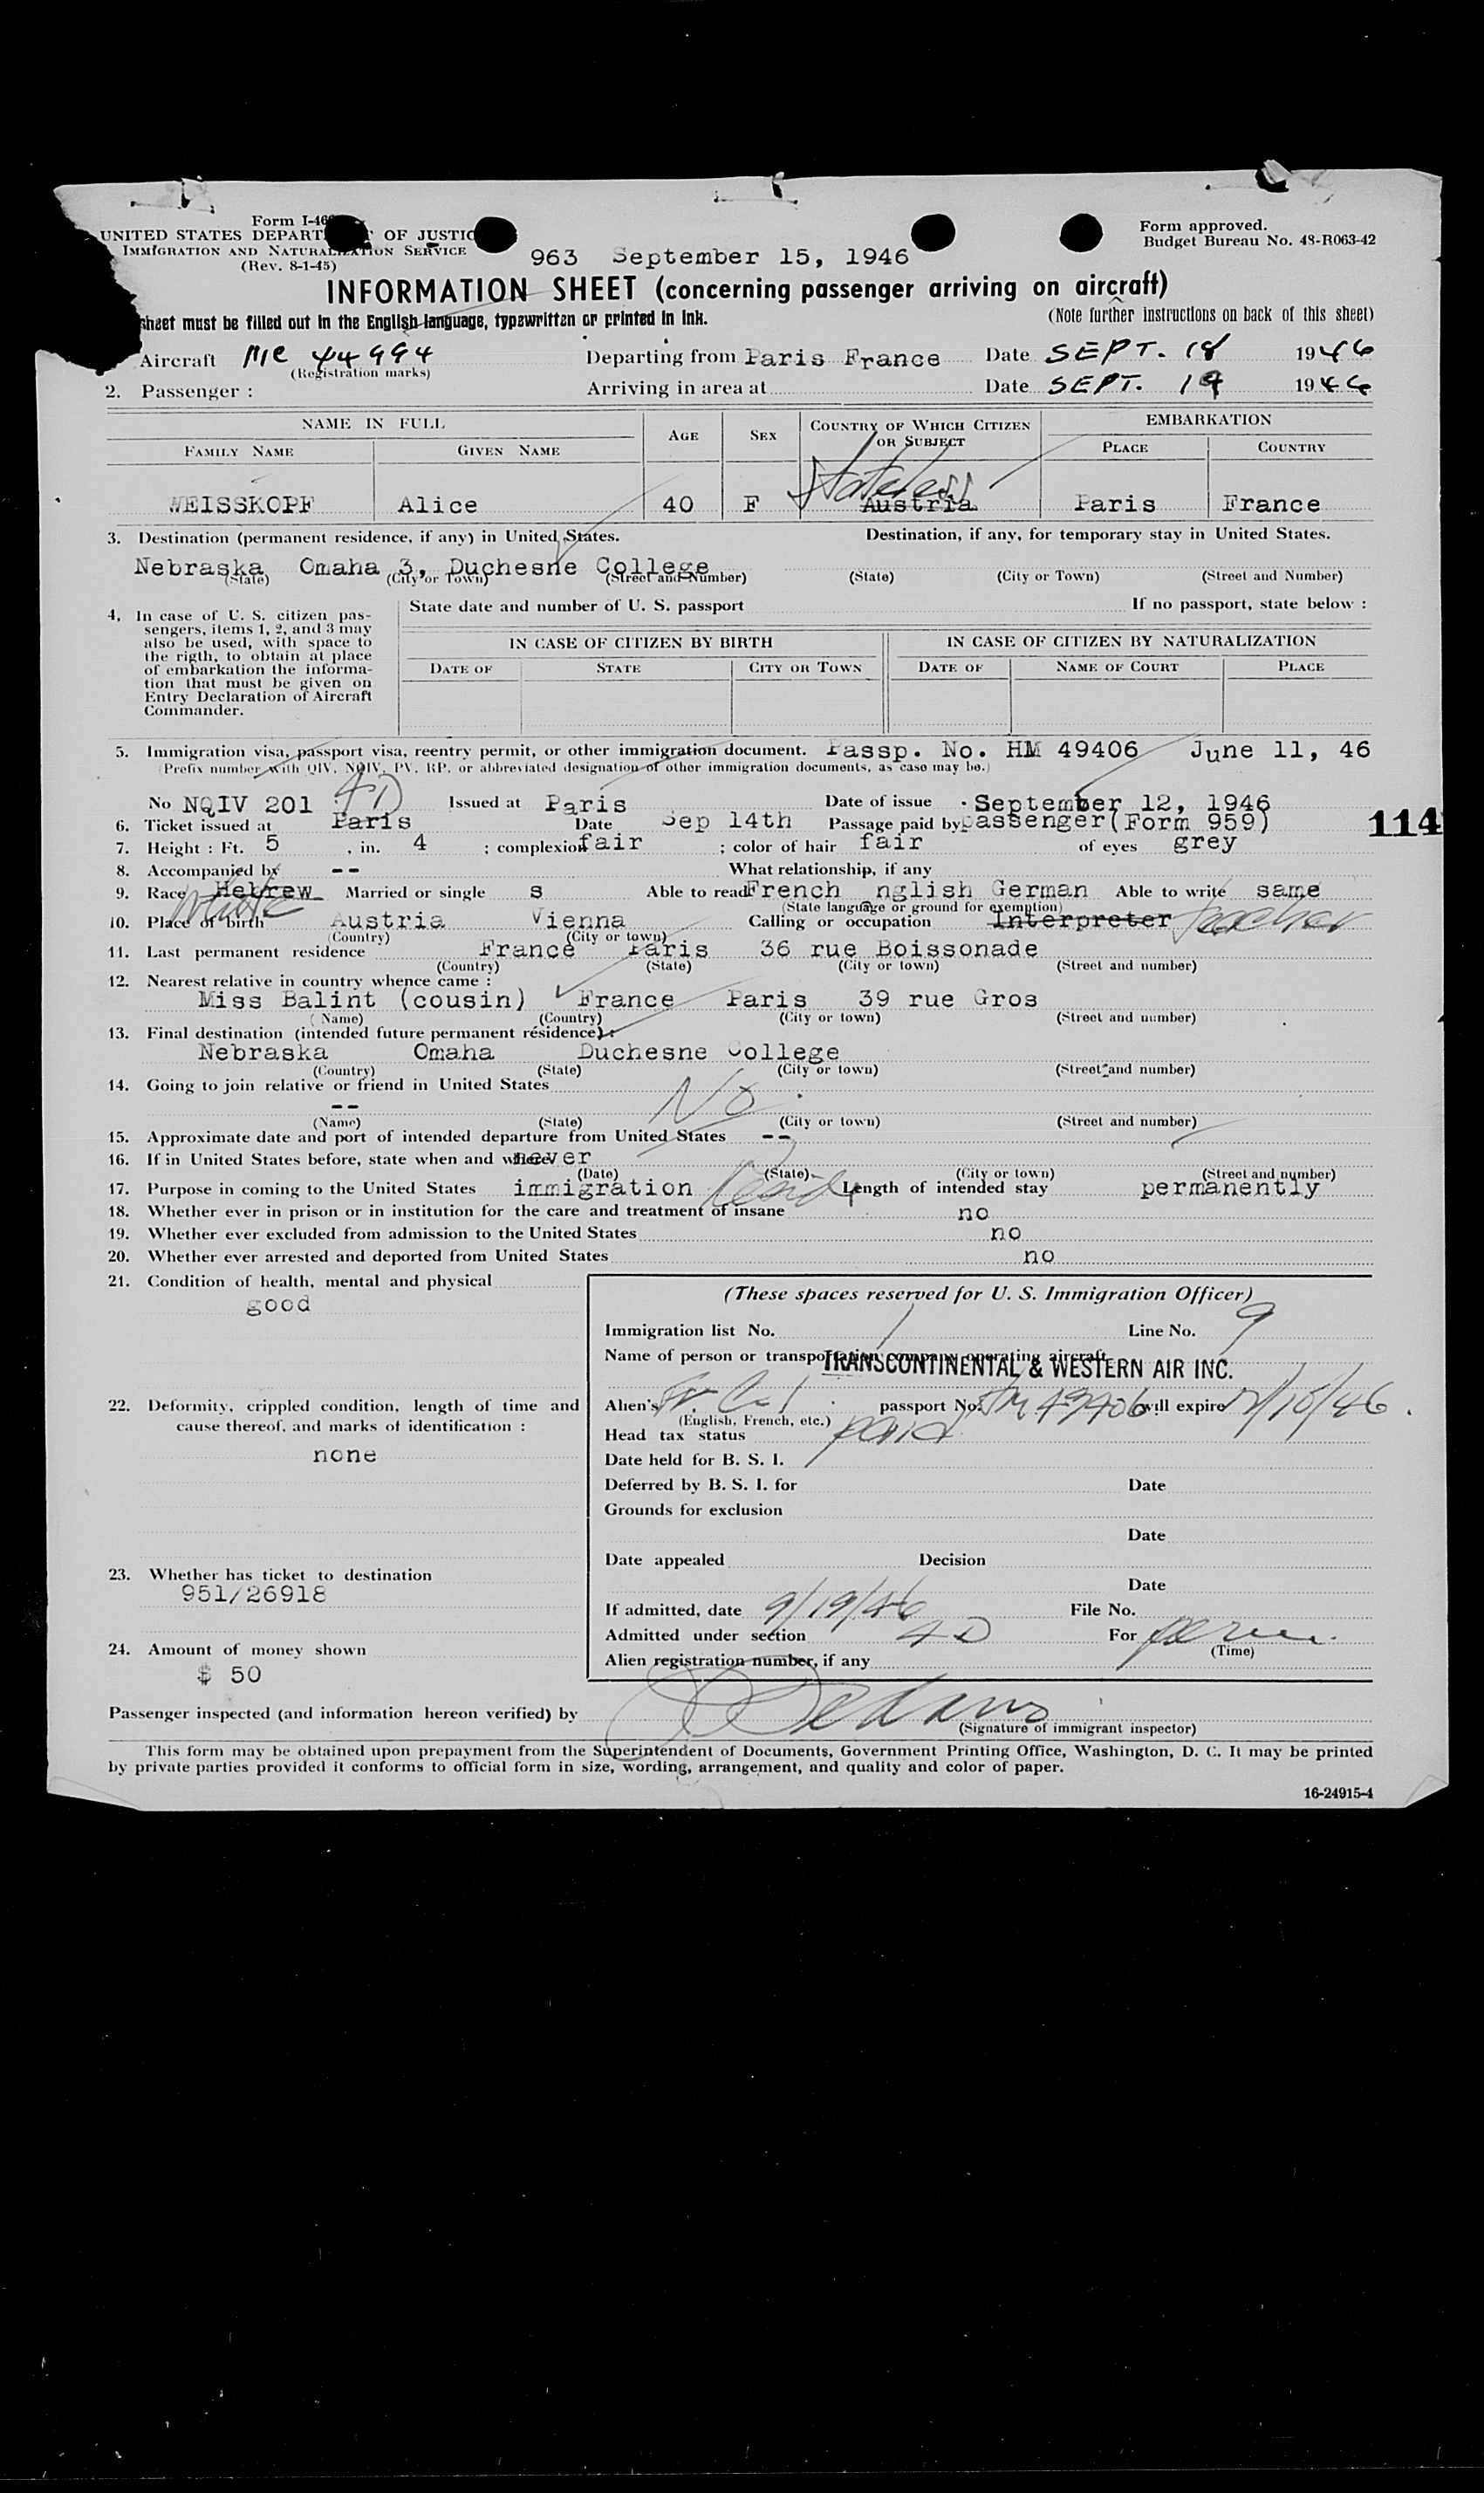 Form I-46
UNITED STATES DEPART OF JUSTIC
IMMIGRATION AND NATURALIZATION SERVICE
(Rev. 8-1-45)
Form approved.
Budget Bureau No. 43-R063-42
963 September 15, 1946
INFORMATION SHEET (concerning passenger arriving on aircraft)
sheet must be filled out in the English language, typewritten or printed in ink.
(Note further instructions on back of this sheet)
Aircraft NC 44994 Departing from Paris France Date SEPT. 18 1946
(Registration marks)
2. Passenger : Arriving in area at Date SEPT. 19 1946
NAME IN FULL AGE SEX COUNTRY OF WHICH CITIZEN OR SUBJECT EMBARKATION
FAMILY NAME GIVEN NAME PLACE COUNTRY
Stateless
WEISSKOPF Alice 40 F Austria Paris France
3. Destination (permanent residence, if any) in United States. Destination, if any, for temporary stay in United States.
Nebraska Omaha 3, Duchesne College
(State) (City or Town) (Street and Number) (State) (City or Town) (Street and Number)
4. In case of U. S. citizen pas-
sengers, items 1, 2, and 3 may
also be used, with space to
the rigth, to obtain at place
of embarkation the informa-
tion that must be given on
Entry Declaration of Aircraft
Commander.
State date and number of U. S. passport If no passport, state below :
IN CASE OF CITIZEN BY BIRTH IN CASE OF CITIZEN BY NATURALIZATION
DATE OF STATE CITY OR TOWN DATE OF NAME OF COURT PLACE
5. Immigration visa, passport visa, reentry permit, or other immigration document. Passp. No. HM 49406 June 11, 46
(Prefix number with QIV, NQIV, PV, RP, or abbreviated designation of other immigration documents, as case may be.)
No NQIV 201 4D Issued at Paris Date of issue September 12, 1946
6. Ticket issued at Paris Date Sep 14th Passage paid by passenger(Form 959)
114
7. Height : Ft. 5 , in. 4 ; complexion fair ; color of hair fair of eyes grey
8. Accompanied by -- What relationship, if any
9. Race Hebrew Married or single s Able to read French nglish German Able to write same
White
(State language or ground for exemption)
10. Place of birth Austria Vienna Calling or occupation Interpreter teacher
(Country) (City or town)
11. Last permanent residence France Paris 36 rue Boissonade
(Country) (State) (City or town) (Street and number)
12. Nearest relative in country whence came :
Miss Balint (cousin) France Paris 39 rue Gros
(Name) (Country) (City or town) (Street and number)
13. Final destination (intended future permanent residence) :
Nebraska Omaha Duchesne College
(Country) (State) (City or town) (Street and number)
14. Going to join relative or friend in United States
-- No
(Name) (State) (City or town) (Street and number)
15. Approximate date and port of intended departure from United States --
16. If in United States before, state when and where never
(Date) (State) (City or town) (Street and number)
17. Purpose in coming to the United States immigration Length of intended stay permanently
18. Whether ever in prison or in institution for the care and treatment of insane no
19. Whether ever excluded from admission to the United States no
20. Whether ever arrested and deported from United States no
21. Condition of health, mental and physical
good
22. Deformity, crippled condition, length of time and
cause thereof, and marks of identification :
none
23. Whether has ticket to destination
951/26918
24. Amount of money shown
$ 50
(These spaces reserved for U. S. Immigration Officer)
Immigration list No. 1 Line No. 9
Name of person or transportation company operating aircraft
TRANSCONTINENTAL & WESTERN AIR INC.
Alien's passport No. HM 49406 will expire 12/10/46.
(English, French, etc.)
Head tax status paid
Date held for B. S. I.
Deferred by B. S. I. for Date
Grounds for exclusion
Date
Date appealed Decision
Date
If admitted, date 9/19/46 File No.
Admitted under section 4D For perm.
(Time)
Alien registration number, if any
Passenger inspected (and information hereon verified) by
(Signature of immigrant inspector)
This form may be obtained upon prepayment from the Superintendent of Documents, Government Printing Office, Washington, D. C. It may be printed
by private parties provided it conforms to official form in size, wording, arrangement, and quality and color of paper.
16-24915-4